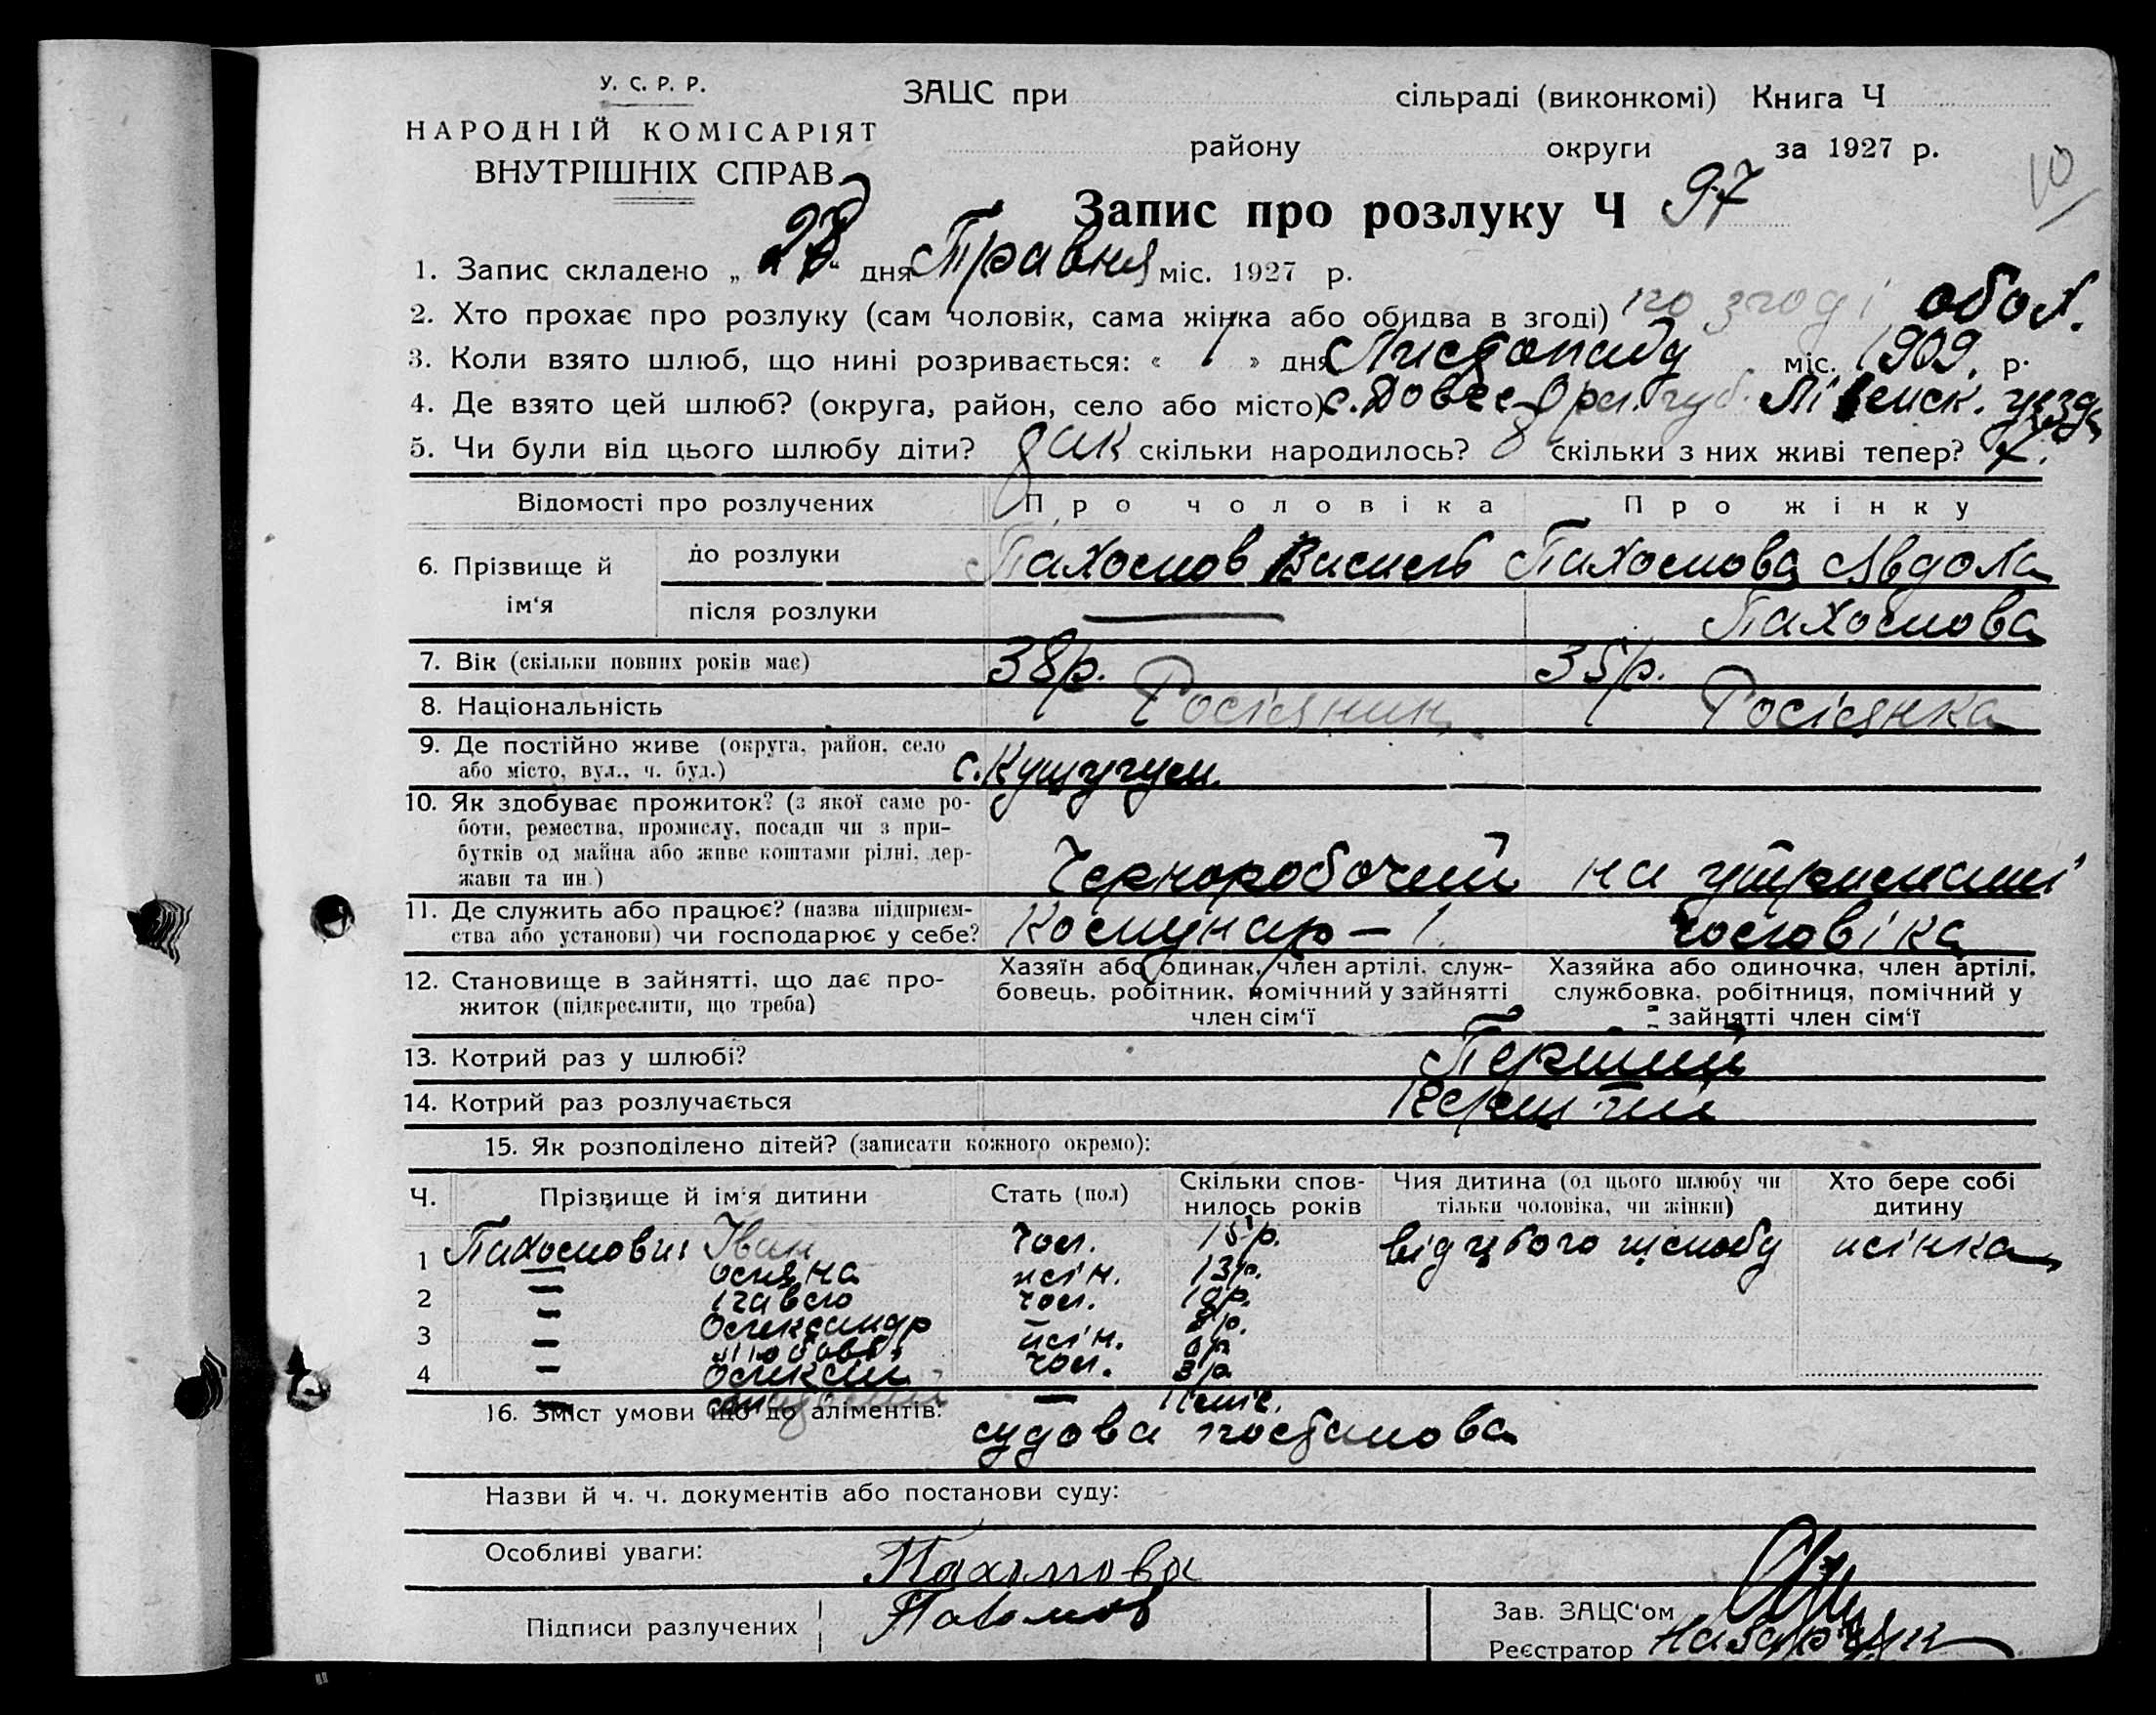 У. С. Р. Р.
НАРОДНІЙ КОМІСАРІЯТ
ВНУТРІШНІХ СПРАВ
ЗАЦС при сільраді (виконкомі) Книга Ч
району округи за 1927 р.
10
Запис про розлуку Ч 97
1. Запис складено „28“ дня Травня міс. 1927 р.
2. Хто прохає про розлуку (сам чоловік, сама жінка або обидва в згоді) по згоді обох.
3. Коли взято шлюб, що нині розривається: « 7 » дня Листопаду міс. 1909. р.
4. Де взято цей шлюб? (округа, район, село або місто) с. Орл. губ. уезда
5. Чи були від цього шлюбу діти? так скільки народилось? 8 скільки з них живі тепер? 7.
Відомості про розлучених Про чоловіка Про жінку
6. Прізвище й ім‘я до розлуки Пахомов Василь Пахомова Явдоха
після розлуки — Пахомова
7. Вік (скільки повних років має) 38 р. 35 р.
8. Національність Росіянин Росіянка
9. Де постійно живе (округа, район, село
або місто, вул., ч. буд.) с. Кушугум.
10. Як здобуває прожиток? (з якої саме ро-
боти, ремества, промислу, посади чи з при-
бутків од майна або живе коштами рідні, дер-
жави та ин.) Чорноробочий на утриманні
11. Де служить або працює? (назва підприєм-
ства або установи) чи господарює у себе? Комунар – 1. чоловіка
12. Становище в зайнятті, що дає про-
житок (підкреслити, що треба)
Хазяїн або одинак, член артілі, служ-
бовець, робітник, помічний у зайнятті
член сім‘ї
Хазяйка або одиночка, член артілі,
службовка, робітниця, помічний у
зайнятті член сім‘ї
13. Котрий раз у шлюбі? Перший
14. Котрий раз розлучається Перший
15. Як розподілено дітей? (записати кожного окремо):
Ч. Прізвище й ім‘я дитини Стать (пол) Скільки спов-
нилось років Чия дитина (од цього шлюбу чи
тільки чоловіка, чи жінки) Хто бере собі
дитину
1 Іван чол. 15 р. від цього шлюбу жінка
— жін. 13 р.
2 — Павло чол. 10 р.
— Олександр 8 р.
3 — Любовь жін. 6 р.
4 — Олексій чол. 3 р.
— —
16. Зміст умови що до аліментів: судова постанова
Назви й ч. ч. документів або постанови суду:
Особливі уваги:
Пахомова
Підписи разлучених Пахомов
Зав. ЗАЦС‘ом
Реєстратор